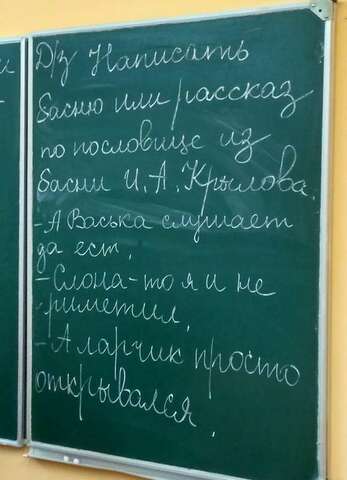 и
Д/з Написать
басню или рассказ
по пословице из
басни И. А. Крылова.
- А Васька слушает
да ест.
- Слона-то я и не
приметил.
- А ларчик просто
открывался.